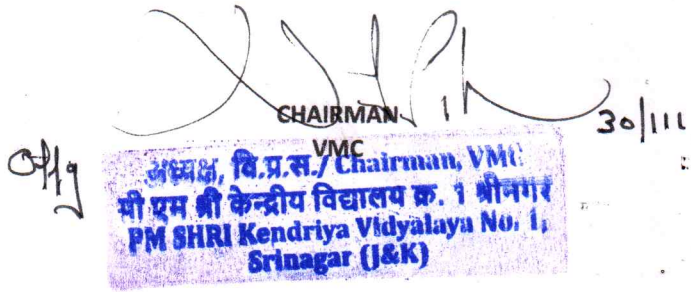 CHAIRMAN
30/111
VMC
Offg
अध्यक्ष, वि.प्र.स./ Chairman, VMC
पी एम श्री केन्द्रीय विद्यालय क्र. 1 श्रीनगर
PM SHRI Kendriya Vidyalaya No. 1,
Srinagar (J&K)